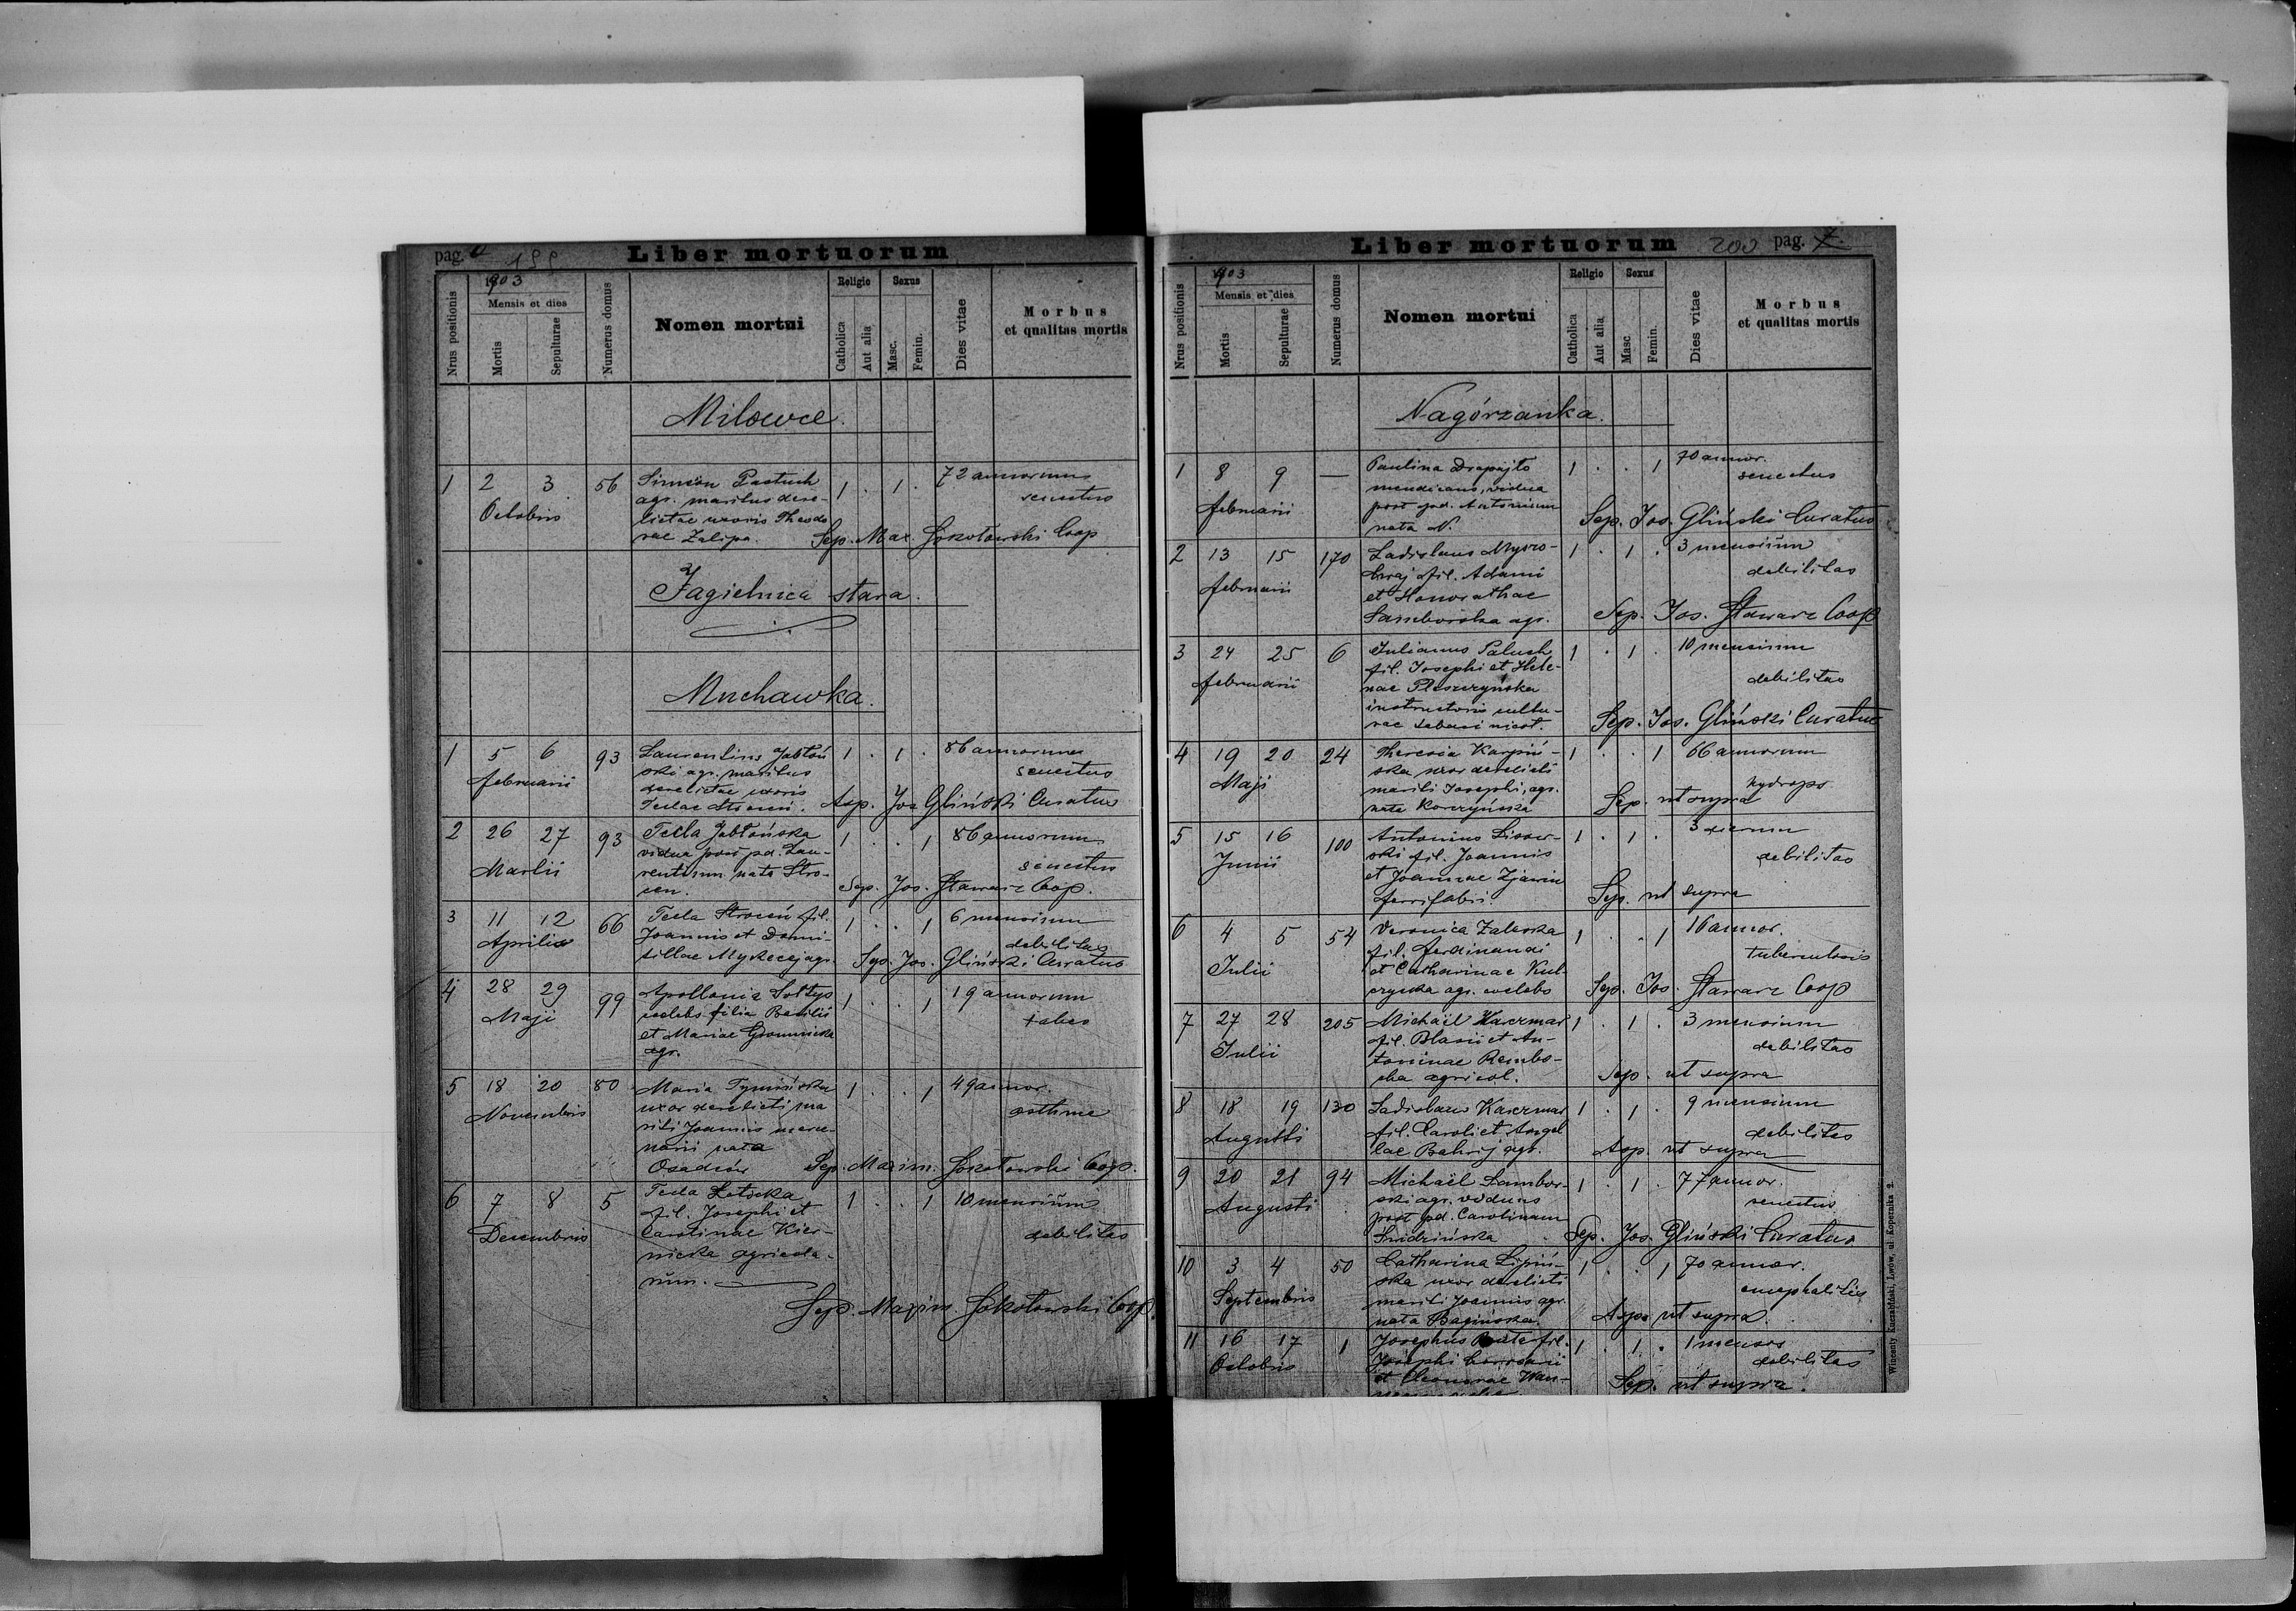 pag. 199
Liber mortuorum
Nrus positionis
1903
Mensis et dies
Mortis
Sepulturae
Numerus domus
Nomen mortui
Religio
Catholica
Aut alia
Sexus
Masc.
Femin.
Dies vitae
Morbus
et qualitas mortis
Milowce.
1 2 3 56 Simeon Pastuch 1 . 1 . 72 annorum
Octobris agr. maritus dere- senectus
lictae uxoris Theodo
rae Zalipa. Sep. Max. Sokołowski Coop
Jagielnica stara.
Muchawka.
1 5 6 93 Laurentius Jabłoń 1 . 1 . 86 annorum
februarii ski agr. maritus senectus
derelictae uxoris
Teclae Asp. Jos Gliński Curatus
2 26 27 93 Tecla Jabłońska 1 . . 1 86 annorum
Martii vidua post pd. Lau-
rentium nata Stro- senectus
cen. Sep. Jos. Stawarz Coop.
3 11 12 66 Tecla Strocen fil. 1 . . 1 6 mensium
Aprilis Joannis et Domi- debilitas
tillae agr. Sep. Jos. Gliński Curatus
4 28 29 99 Apollonia Sołtys 1 . . 1 19 annorum
Maji coelebs filia Basilii tabes
et Mariae
agr.
5 18 20 80 Maria Tymińska 1 . . 1 49 annor.
Novembris uxor derelicti ma asthma
riti Joannis merce-
narii nata
Osadców Sep. Maxim. Sokołowski Coop.
6 7 8 5 Tecla 1 . . 1 10 mensium
Decembris fil. Josephi et
Carolinae Kier- debilitas
nicka agricola-
rum.
Sep. Maxim. Sokołowski Coop.
Liber mortuorum
200 pag. 7.
Nrus positionis
1903
Mensis et dies
Mortis
Sepulturae
Numerus domus
Nomen mortui
Religio
Catholica
Aut alia
Sexus
Masc
Femin.
Dies vitae
Morbus
et qualitas mortis
Nagórzanka.
1 8 9 — Paulina Drapajło 1 . . 1 70 annor.
februarii mendicans, vidua senectus
post pd. Antonium
nata N. Sep. Jos. Gliński Curatus
2 13 15 170 Ladislaus 1 . 1 . 3 mensium
februarii fil. Adami debilitas
et Honorathae
Samborska agr. Sep. Jos. Stawarz Coop
3 24 25 6 Julianus Paluch 1 . 1 . 10 mensium
februarii fil. Josephi et Hele-
nae debilitas
instructoris cultu-
rae tabaci nicot. Sep. Jos. Gliński Curatus
4 19 20 24 Theresia Karpiń- 1 . . 1 66 annorum
Maji ska uxor derelicti
mariti Josephi, agr. hydrops
nata Korczyńska Sep. ut supra
5 15 16 100 Antonius Lisow- 1 . 1 . 3 dierum
Junii ski fil. Joannis debilitas
et Joannae Zjawin
ferrifabri. Sep. ut supra
6 4 5 54 Veronica Zaleska 1 . . 1 16 annor.
Julii fil. ferdinandi tuberculosis
et Catharinae Kul-
czycka agr. coelebs Sep. Jos. Stawarz Coop
7 27 28 205 Michaël Kaczmar 1 . 1 . 3 mensium
Julii fil. Blasii et An- debilitas
toninae Rembo-
cha agricol. Sep. ut supra
8 18 19 130 Ladislaus Kaczmar 1 . 1 . 9 mensium
Augusti fil. Caroli et Angel debilitas
lae Bahrij agr. Asp. ut supra
9 20 21 94 Michaël Sambor- 1 . 1 . 77 annor.
Augusti ski agr. viduus senectus
post pd. Carolinam
Śmidzińska Sep. Jos. Gliński Curatus
10 3 4 50 Catharina Lipiń- 1 . . 1 70 annor.
Septembris ska uxor derelicti encephalitis
mariti Joannis agr.
nata Bagińska. Asp. ut supra.
11 16 17 1 Josephus fil. 1 . 1 . 1 mensis
Octobris Josephi debilitas
et Eleonorae Wan-
Sep. ut supra.
Wincenty Kuczabiński, Lwów, ul. Kopernika 2.